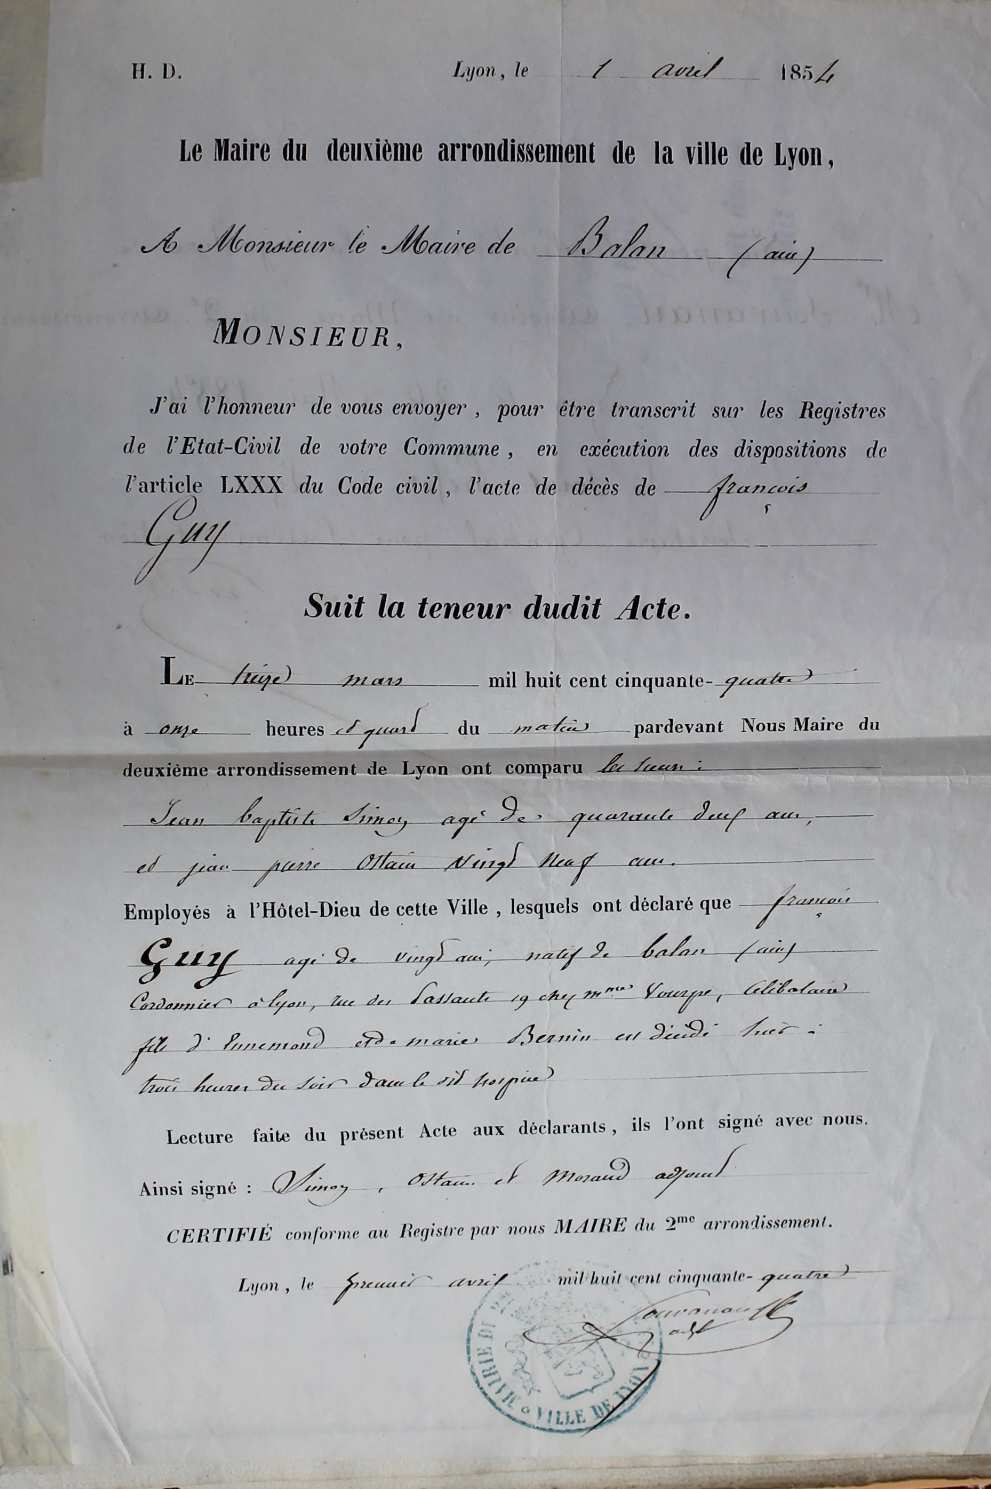 H. D. Lyon, le 1 avril 1854
Le Maire du deuxième arrondissement de la ville de Lyon,
A Monsieur le Maire de Balan (ain)
MONSIEUR,
J'ai l'honneur de vous envoyer, pour être transcrit sur les Registres
de l'Etat-Civil de votre Commune, en exécution des dispositions de
l'article LXXX du Code civil, l'acte de décès de françois
Guy
Suit la teneur dudit Acte.
LE treize mars mil huit cent cinquante-quatre
à onze heures et quard du matin pardevant Nous Maire du
deuxième arrondissement de Lyon ont comparu les sieurs :
Jean baptiste Simon agé de quarante deux ans,
et jean pierre Ostain vingt neuf ans.
Employés à l'Hôtel-Dieu de cette Ville, lesquels ont déclaré que françois
Guy agé de vingt ans, natif de balan (ain)
Cordonnier à lyon, rue des 19 chez mme Célibataire
fils d'Ennemond et de marie Bernin est décédé hier à
trois heures du soir dans le dit hospice
Lecture faite du présent Acte aux déclarants, ils l'ont signé avec nous.
Ainsi signé : Simon, Ostain et Morand adjoint
CERTIFIÉ conforme au Registre par nous MAIRE du 2me arrondissement.
Lyon, le premier avril mil huit cent cinquante-quatre
adjt
MAIRIE DU VILLE DE LYON